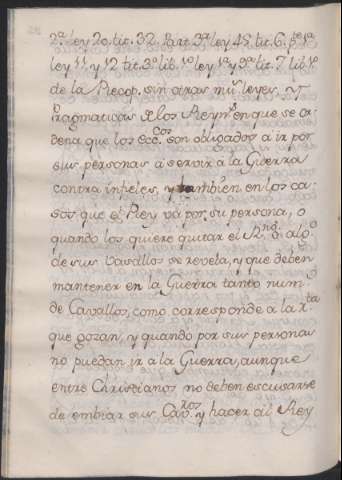 2ª. ley 20. tit. 32. Part. 3ª. ley 45. tit. 6. pte. 1ª.
ley 11. y 12 tit. 3º. lib. 1º ley 1ª y 3ª tit. 7. lib. 1º
de la Recop. sin otras mu. leyes, y
Pragmaticas de los Reyn.s en que se or
dena que los Ecc.cos son obligados a ir por
sus personas à servir à la Guerra
contra infieles, y tambien en los ca-
sos que el Rey và por su persona, o
quando los quiere quitar el R.no o alg.o
de sus Vasallos se revela, y que deben
mantener en la Guerra tanto num.o
de Cavallos, como corresponde a la r.ta
que gozan, y quando por sus personas
no puedan ir a la Guerra, aunque
entre Christianos no deben escusarse
de embiar sus Cav.ros y hacer al Rey